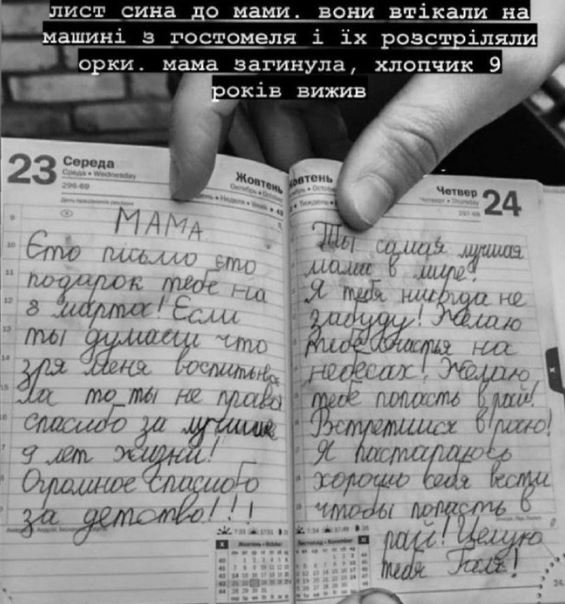 лист сина до мами. вони втікали на
машині з гостомеля і їх розстріляли
орки. мама загинула, хлопчик 9
років вижив
23 Середа
Среда • Wednesday
296-69
Жовтень
МАМА
Єто письмо єто
подарок тебе на
8 марта! Если
ты думаеш что
зря меня воспитывала
то ты не права
спасибо за лучшие
9 лет жизни!
Огромное спасибо
за детство!!!
Жовтень
Четвер 24
Четверг • Thursday
297-68
Ты самая лучшая
мама в мире!
Я тебя никогда не
забуду! Желаю
тебе счастья на
небесах! Желаю
тебе попасть в рай!
Встретимся в раю!
Я пастараюсь
хорошо себя вести
чтобы попасть в
рай! Целую
тебя